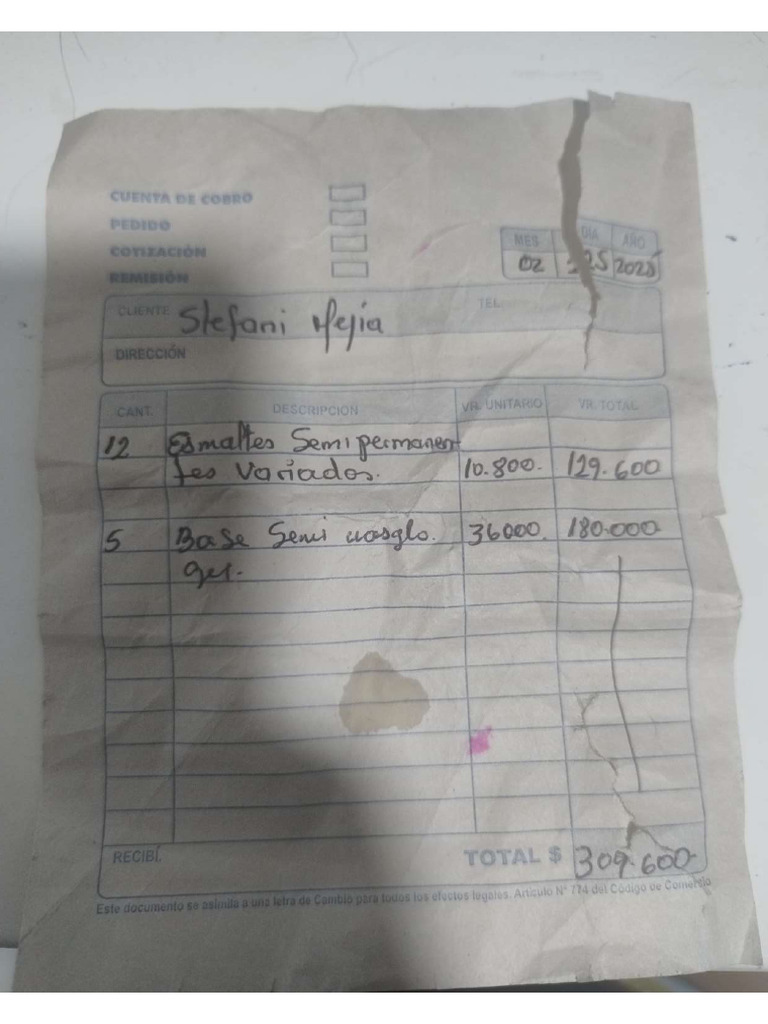 CUENTA DE COBRO
PEDIDO
COTIZACIÓN
REMISIÓN
MES DIA AÑO
02 2025
CLIENTE Stefani Mejia TEL
DIRECCIÓN
CANT. DESCRIPCION VR. UNITARIO VR. TOTAL
12 Esmaltes Semipermanen
tes Variados. 10.800. 129.600
5 Base Semi 36000. 180.000
gel.
RECIBÍ. TOTAL $ 309.600
Este documento se asimila a una letra de Cambio para todos los efectos legales. Artículo N° 774 del Código de Comercio